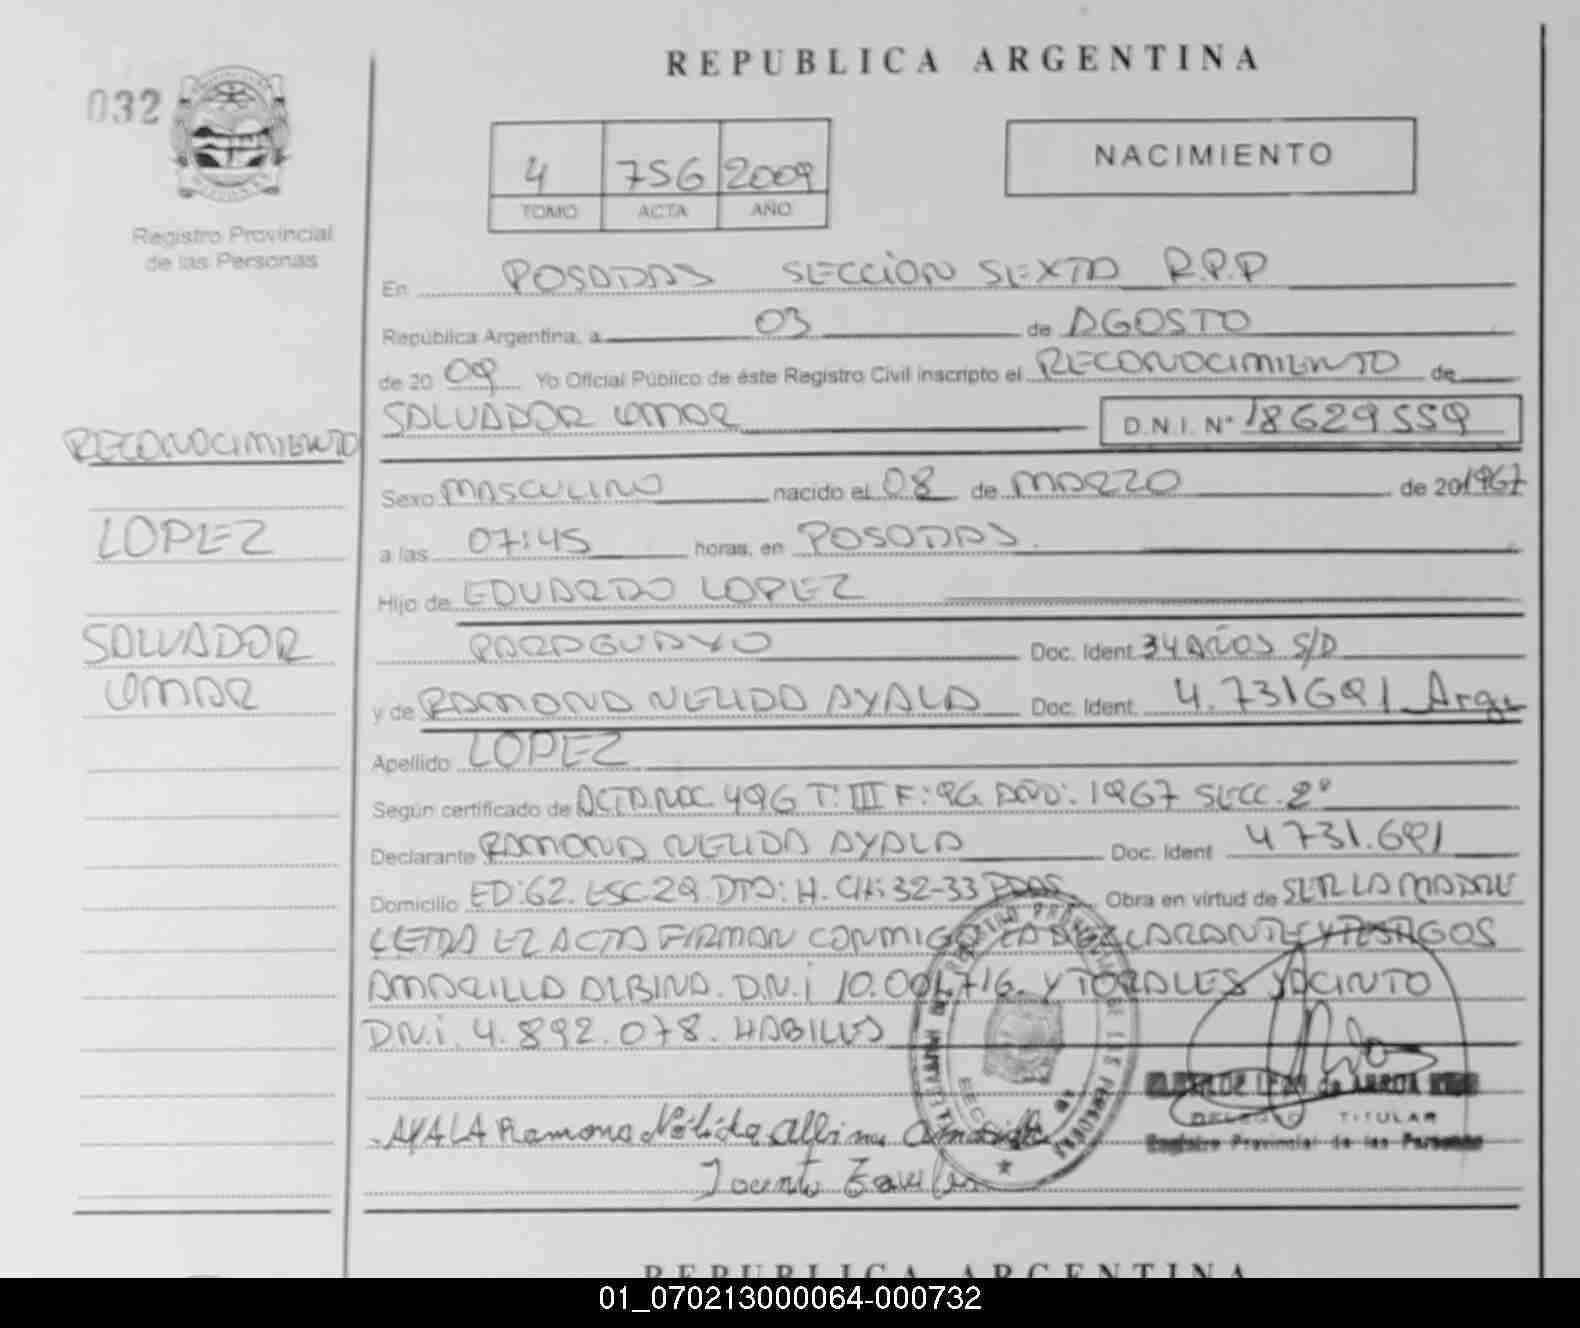 REPUBLICA ARGENTINA
032
NACIMIENTO
4 756 2009
TOMO ACTA AÑO
Registro Provincial
de las Personas
En POSADAS SECCION SEXTA R.P.P
República Argentina, a 03 de AGOSTO
de 20 09 Yo Oficial Público de éste Registro Civil inscripto el RECONOCIMIENTO de
SALVADOR OMAR D.N.I. Nº 18629559
RECONOCIMIENTO
Sexo MASCULINO nacido el 08 de MARZO de 20 1967
LOPEZ
a las 07:45 horas, en POSADAS.
Hijo de EDUARDO LOPEZ
SALVADOR
OMAR
PARAGUAYO Doc. Ident. 34 AÑOS S/D
y de RAMONA NELIDA AYALA Doc. Ident. 4.731691 Arg
Apellido LOPEZ
Según certificado de ACTA NAC. 496 T: III F: 96 AÑO: 1967 SECC. 2º
Declarante RAMONA NELIDA AYALA Doc. Ident 4731.691
Domicilio ED:62. ESC.29. DTO: H. CH: 32-33 PDAS Obra en virtud de SER LA MADRE
LEIDA EL ACTA FIRMAN CONMIGO LA DECLARANTE Y TESTIGOS
AMARILLA ALBINA. D.N.i Y TORALES JACINTO
DN.i. 4.892.078. HABILES
AYALA Ramona Nélida Albina
Jacinto
de ARROA
DELEGADO TITULAR
Registro Provincial de las Personas
REPUBLICA ARGENTINA
01_070213000064-000732